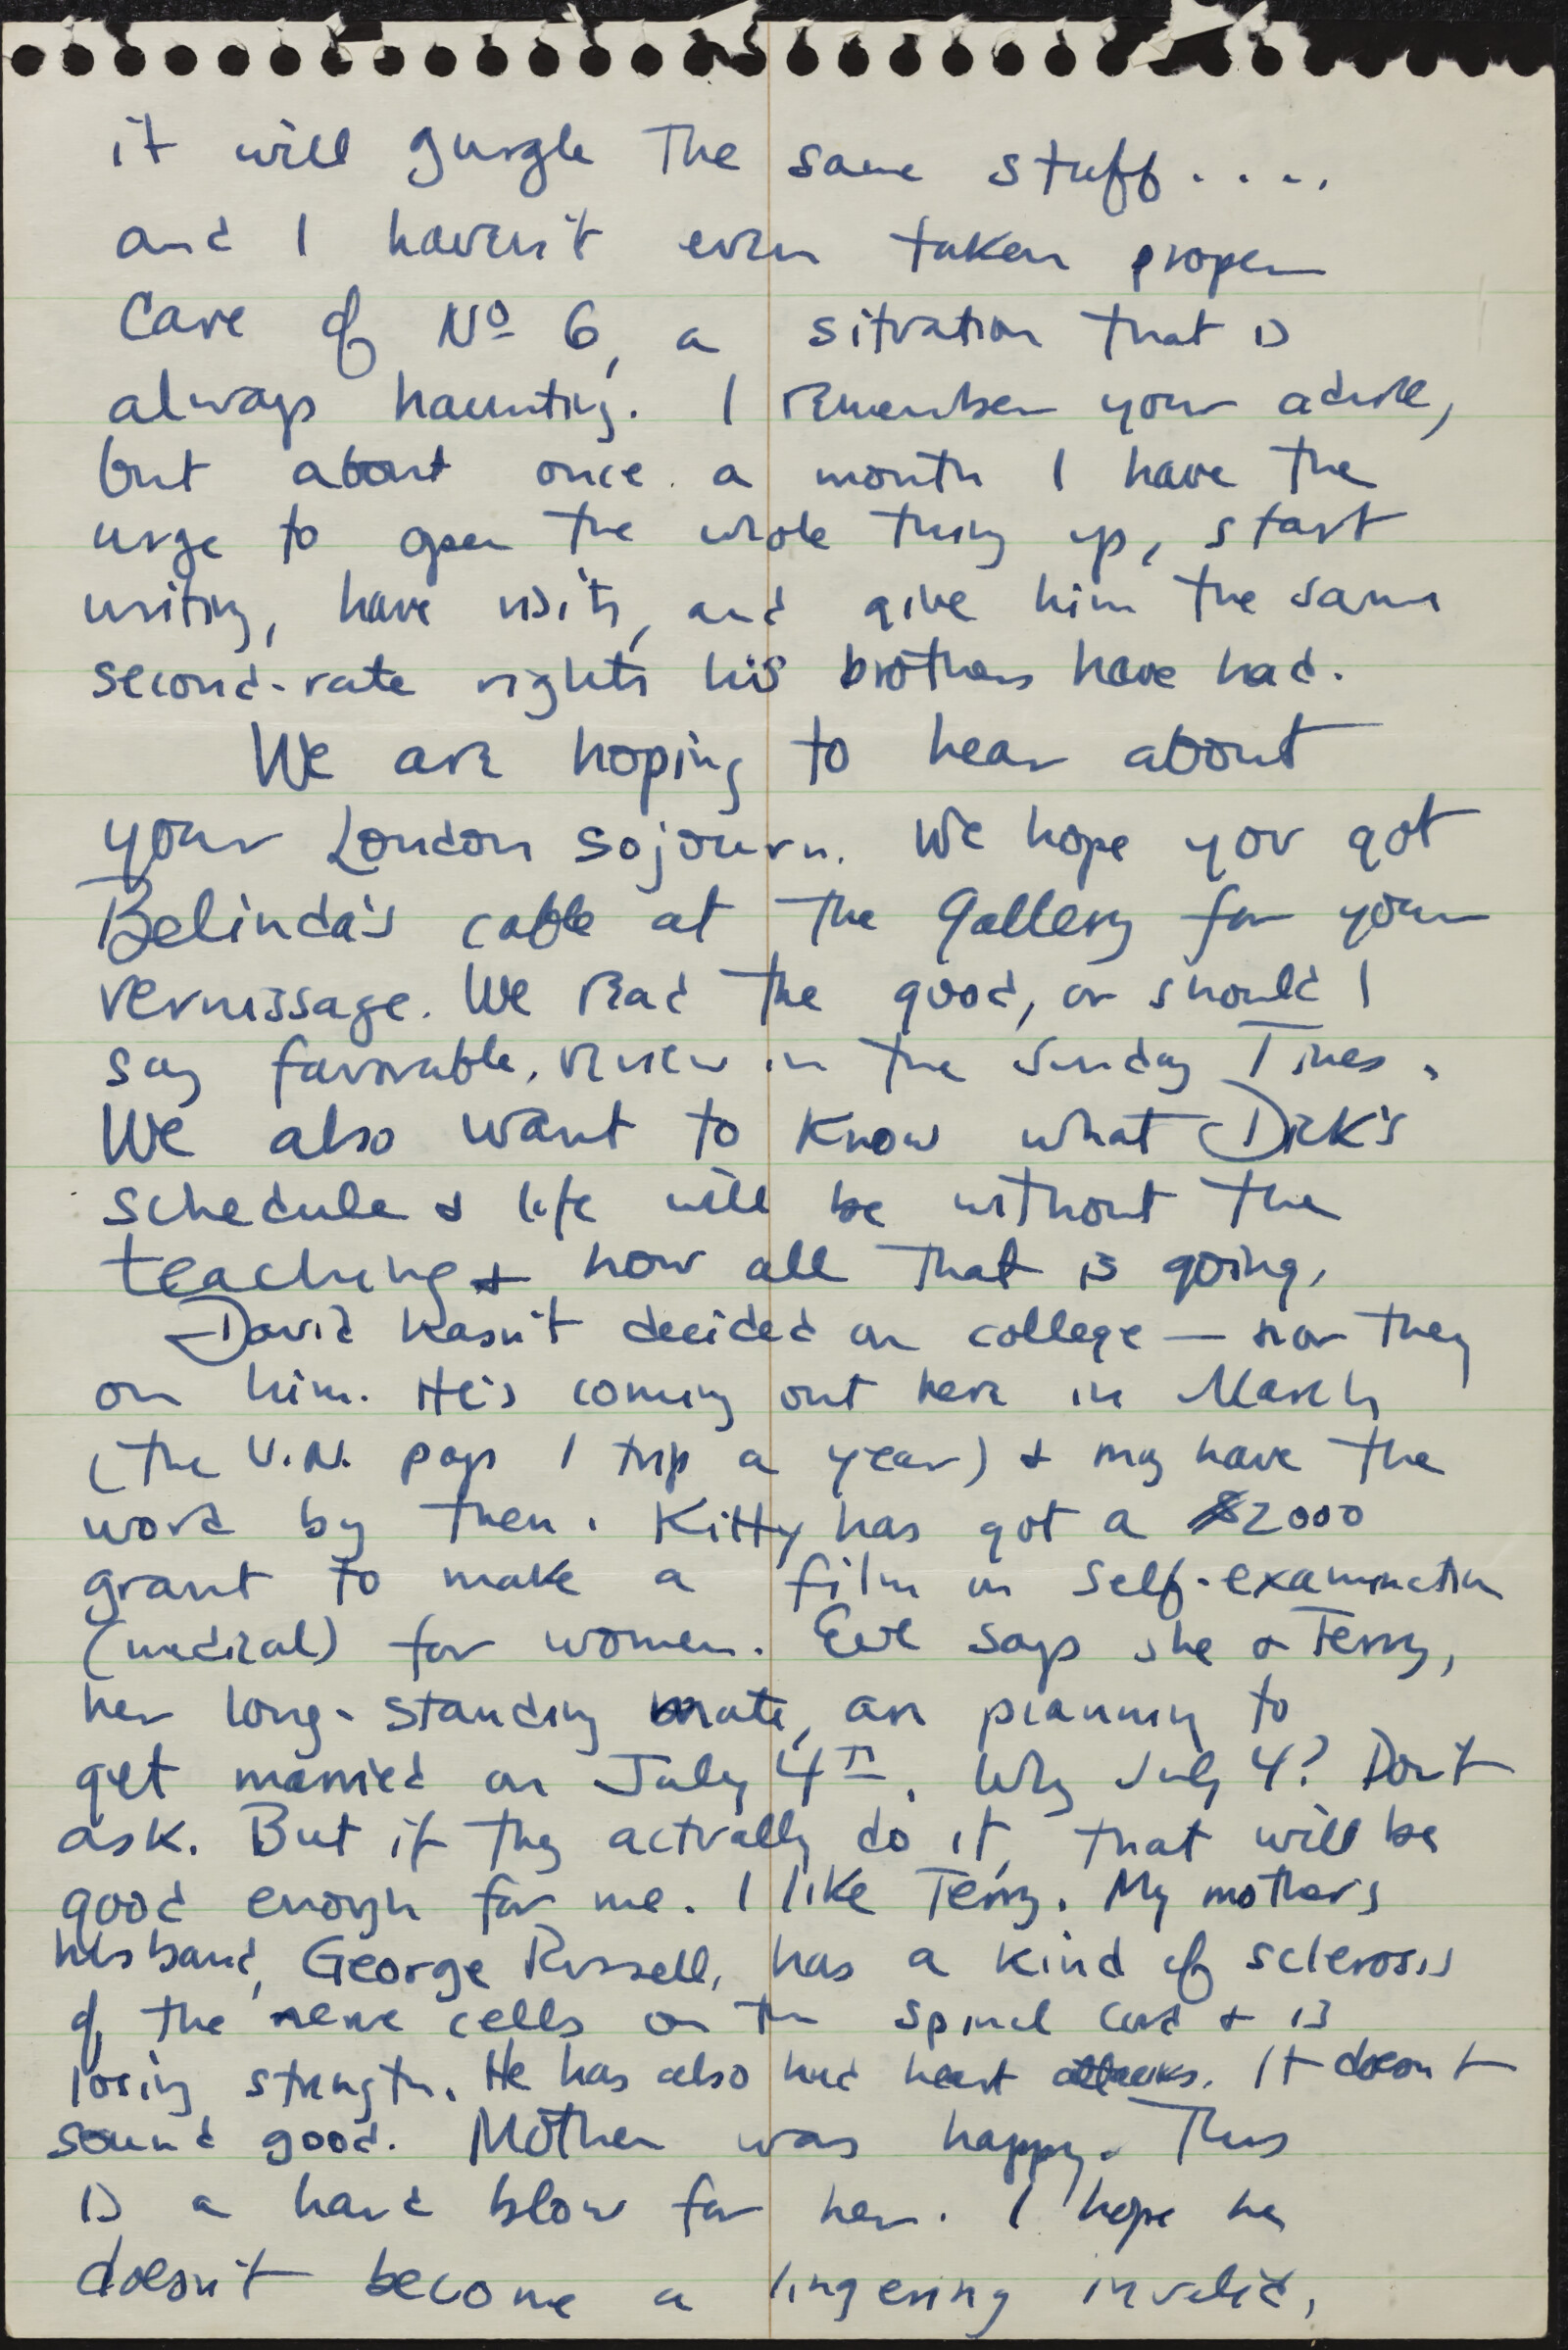 it will gurgle the same stuff....
and I haven't even taken proper
care of Nº 6, a situation that is
always haunting. I remember your advice,
but about once a month I have the
urge to open the whole thing up, start
writing, have visits, and give him the same
second-rate rights his brothers have had.
We are hoping to hear about
your London sojourn. We hope you got
Belinda's cable at the Gallery for your
vernissage. We read the good, or should I
say favorable, review in the Sunday Times.
We also want to know what Dick's
schedule & life will be without the
teaching & how all that is going.
David hasn't decided on college — nor they
on him. He's coming out here in March
(the U.N. pays 1 trip a year) & may have the
word by then. Kitty has got a $2000
grant to make a film on self-examination
(medical) for women. Eve says she & Terry,
her long-standing mate, are planning to
get married on July 4th. Why July 4? Don't
ask. But if they actually do it, that will be
good enough for me. I like Terry. My mother's
husband, George Russell, has a kind of sclerosis
of the nerve cells on the spinal cord & is
losing strength. He has also had heart attacks. It doesn't
sound good. Mother was happy. This
is a hard blow for her. I hope he
doesn't become a lingering invalid,